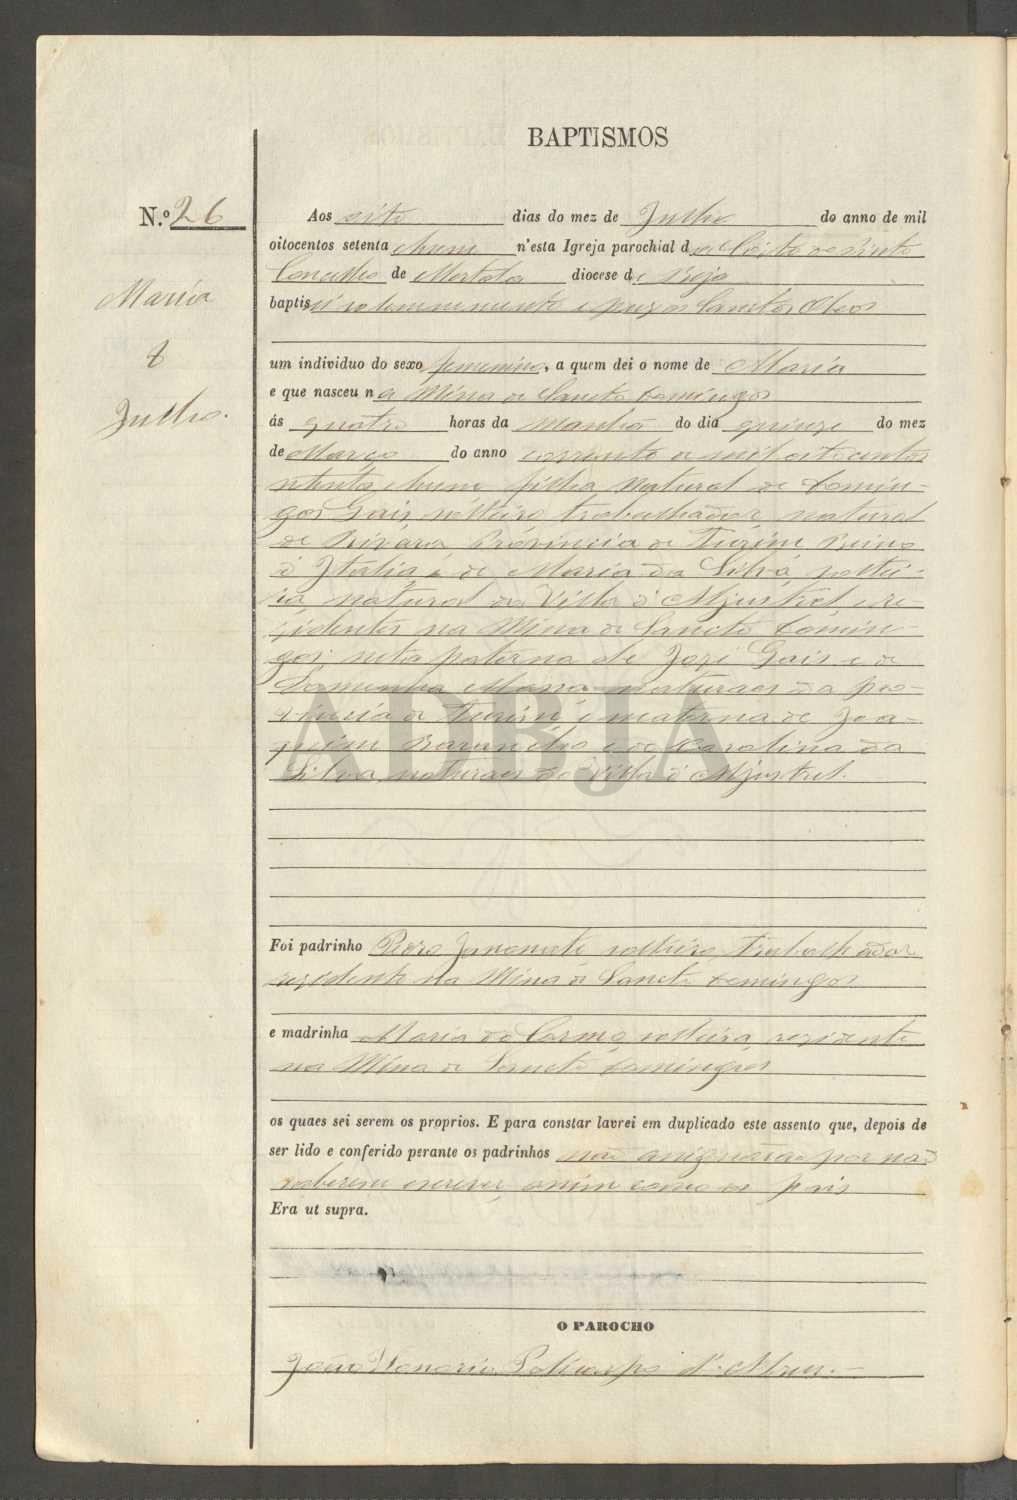 BAPTISMOS
N.º 26
Maria
8
Julho.
Aos oito dias do mez de Julho do anno de mil
oitocentos setenta e hum n'esta Igreja parochial de Côrte do Pinto
Concelho de Mertola diocese de Beja
baptisei solemnemente e puz os Sanctos Oleos
um individuo do sexo femenino, a quem dei o nome de Maria
e que nasceu na Mina de Sancto Domingos
ás quatro horas da manhã do dia quinze do mez
de Março do anno corrente de mil oitocentos
setenta e hum filha natural de Domin-
gos Gais solteiro trabalhador natural
de Rivára Provincia de Turim Reino
d'Italia, e de Maria da Silva soltei-
ra natural da Villa d'Aljustrel e re-
zidentes na Mina de Sancto Domin-
gos; neta paterna de Jozé Gais e de
Maria naturaes da pro-
vincia de Turim e materna de Joa-
quim e de Carolina da
Silva naturaes da Villa d'Aljustrel.
Foi padrinho solteiro Trabalhador
rezidente na Mina de Sancto Domingos
e madrinha Maria do Carmo solteira rezidente
na Mina de Sancto Domingos
os quaes sei serem os proprios. E para constar lavrei em duplicado este assento que, depois de
ser lido e conferido perante os padrinhos não assignarão por não
saberem escrever assim como os pais
Era ut supra.
O PAROCHO
João Honorio Policarpo d'Abreu.
ADBJA